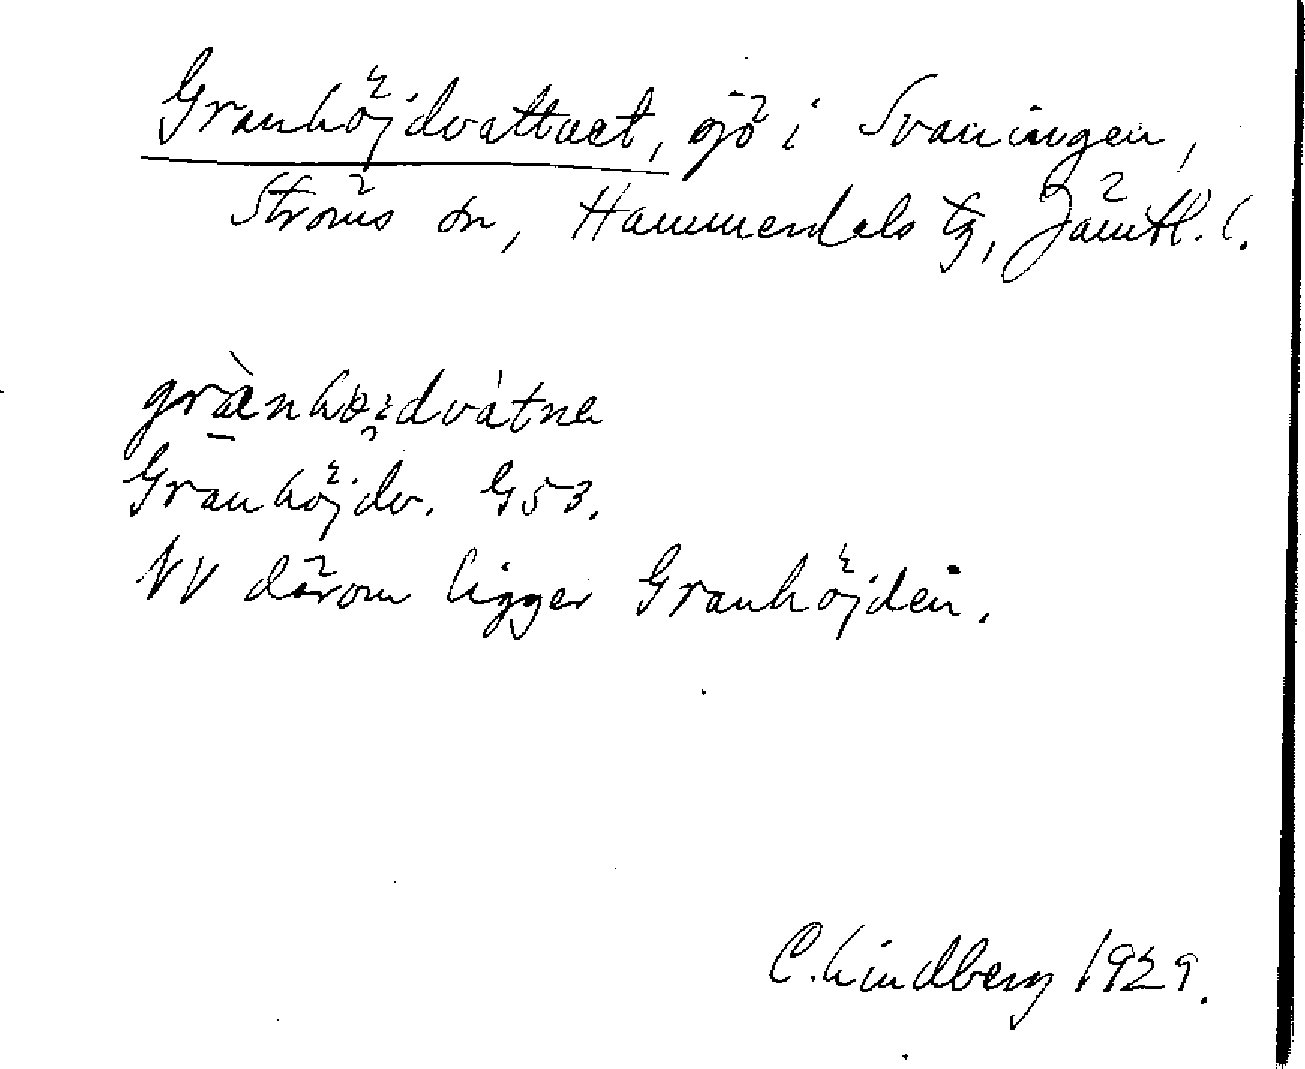 Granhöjdvattnet, sjö i Svaningen,
Ströms sn, Hammerdals tg, Jämtl. l.
grànhö̭ıdvátnɐ
Granhöjdv. G53.
NV därom ligger Granhöjden.
C. Lindberg 1929.